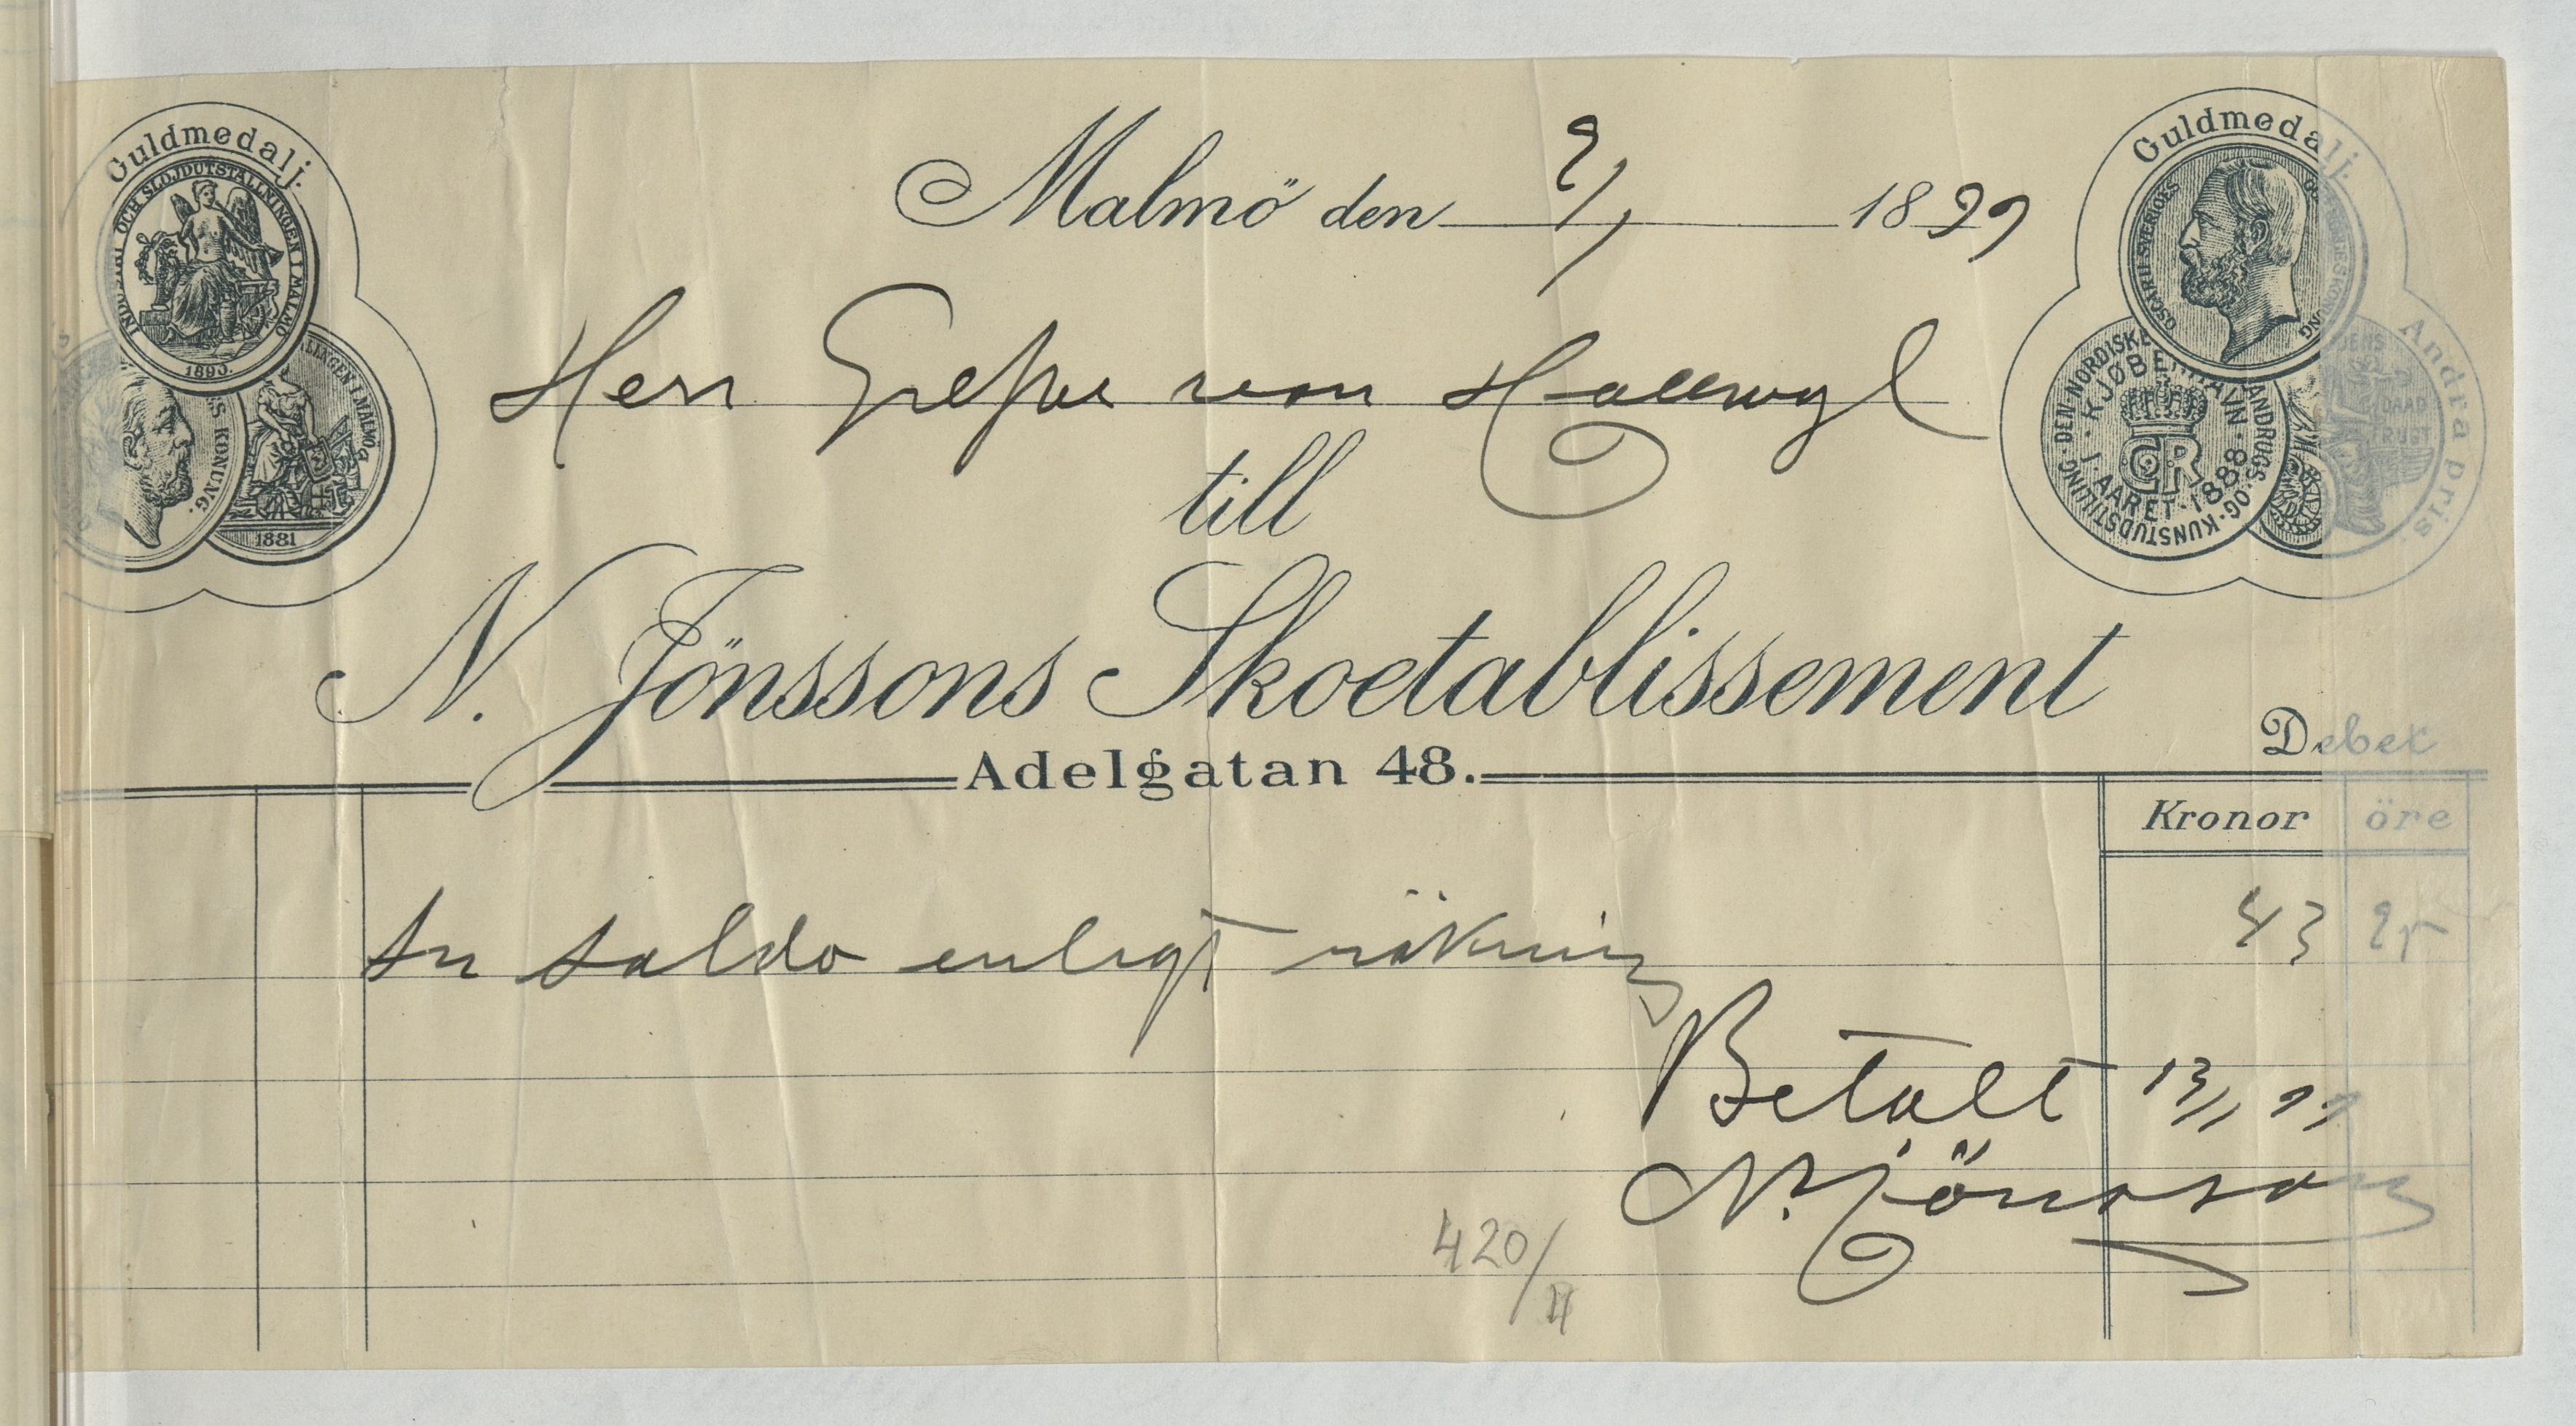 Guldmedalj.
INDUSTRI OCH SLÖJDUTSTÄLLNINGEN I MALMÖ
1890.
S KONUNG.
LNINGEN I MALMÖ
1881
Malmö den 9/1 1899
Guldmedalj.
OSCAR II SVERIGES
DEN NORDISKE
LANDBRUGS·OG·KUNSTUDSTILLING
I·KJØBENHAVN
I·AARET·1888
Andra pris.
Herr Grefve von Hallwyl
till
N. Jönssons Skoetablissement
Adelgatan 48.
Debet
Kronor öre
An saldo enligt räkning 43 25
Betalt 13/1 99
N. Jönsson
420/